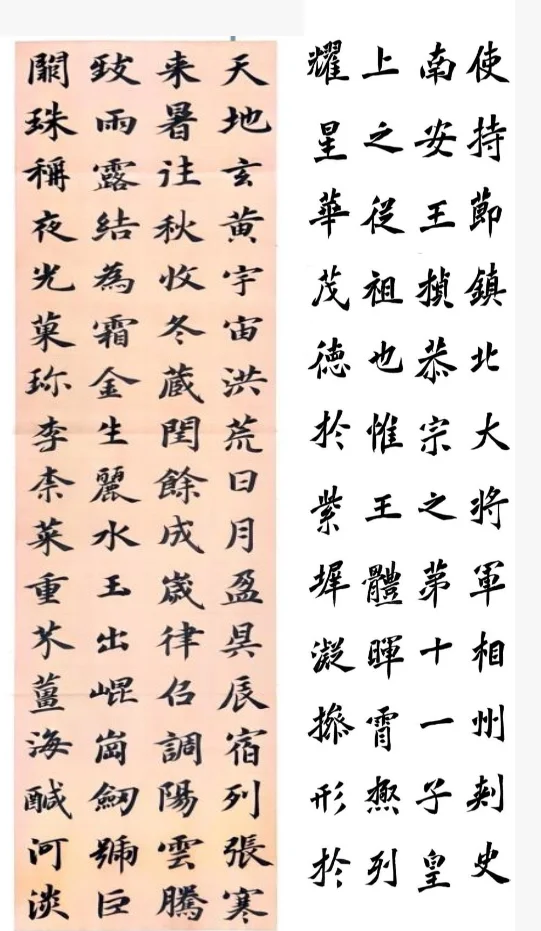 使持節鎮北大將軍相州刾史
南安王楨恭宗之苐十一子皇
上之從祖也惟王體暉霄㷱列
耀星華茂德於紫墀凝操形於
天地玄黄宇宙洪荒日月盈昃辰宿列張寒
来暑往秋收冬藏閏餘成歲律召調陽雲騰
致雨露結為霜金生麗水玉出崐崗劒號巨
闕珠稱夜光菓珎李柰菜重芥薑海醎河淡